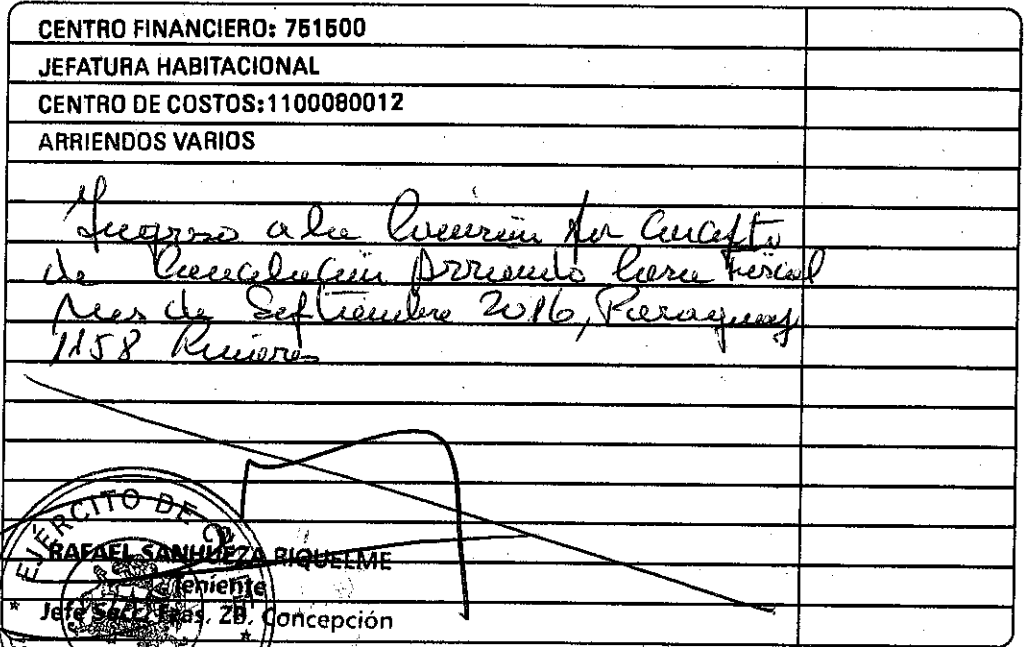 CENTRO FINANCIERO: 751500
JEFATURA HABITACIONAL
CENTRO DE COSTOS:1100080012
ARRIENDOS VARIOS
Ingreso a la Comisión por Concepto
de Cancelación Arriendo Casa Fiscal
Mes de Septiembre 2016, Paraguay
1158
EJÉRCITO DE
RAFAEL SANHUEZA RIQUELME
Teniente
Jefe Secc. Fzas. ZB. Concepción